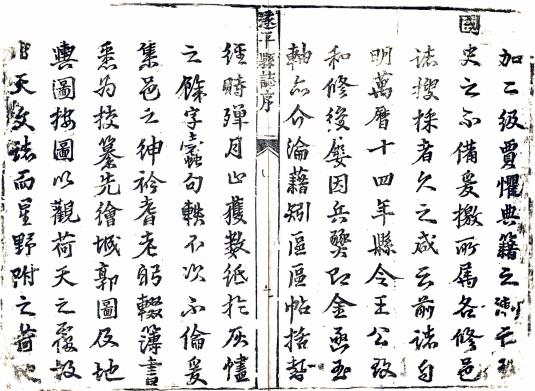 加二級賈懼典籍之
國史之不備爰檄所屬各修邑
誌搜採者久之咸云前誌自
明萬曆十四年縣令王公致
和修後屢因兵燹即金函玉
軸亦介淪藉矧區區帖括
遂平縣誌序
經時殫月止獲數紙於灰燼
之餘字蠹句軼不次不倫爰
集邑之紳衿耆老躬輟簿書
悉為校纂先繪城郭圖及地
輿圖按圖以觀荷天之覆故
天文誌而星野附之荷地